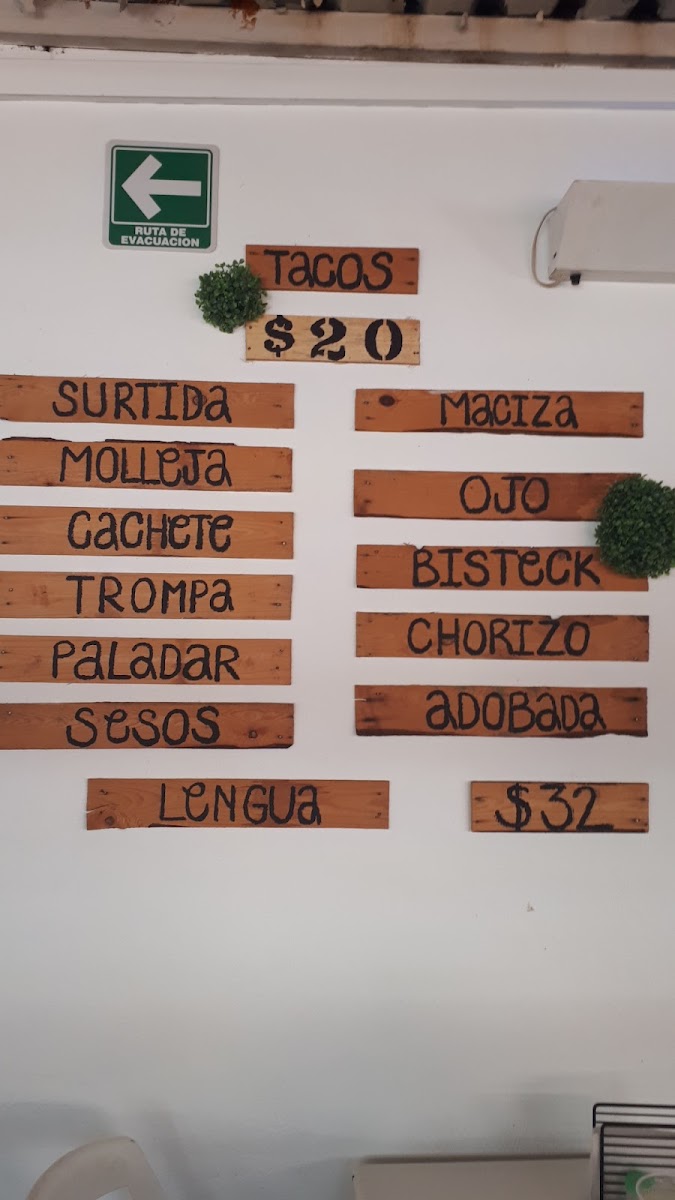 RUTA DE
EVACUACION
TACOS
$20
SURTIDA
MOLLEJA
CACHETE
TROMPA
PALADAR
SESOS
MACIZA
OJO
BISTECK
CHORIZO
ADOBADA
LENGUA $32